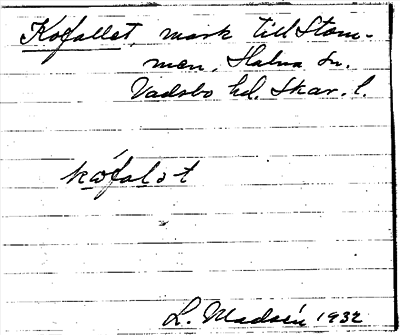 Kofallet, mark till Stom-
men, Halna sn.
Vadsbo hd. Skar. l.
kófalət
L. Madsén 1932